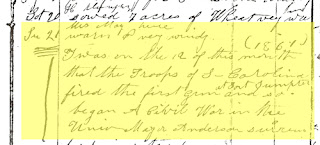 Sat 20 sowed 7 acres of Wheat very wa
Su 21 warm & very windy
(1861)
Twas on the 12 of this month
that the Troops of S- Carolina
fired the first gun and so
at Fort Sumpter
began A Civil War in the
Union Major Anderson surren